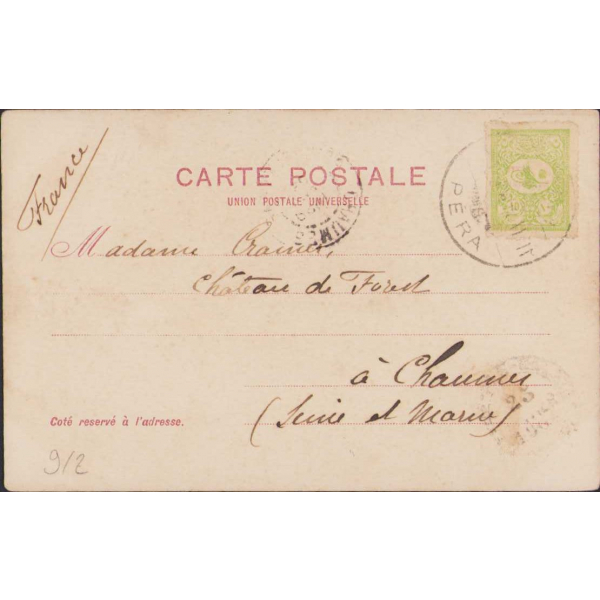 France
CARTE POSTALE
UNION POSTALE UNIVERSELLE
PERA
Madame Cramer,
Château de Forest
à Chaumes
(Seine et Marne)
Coté reservé à l'adresse.
912